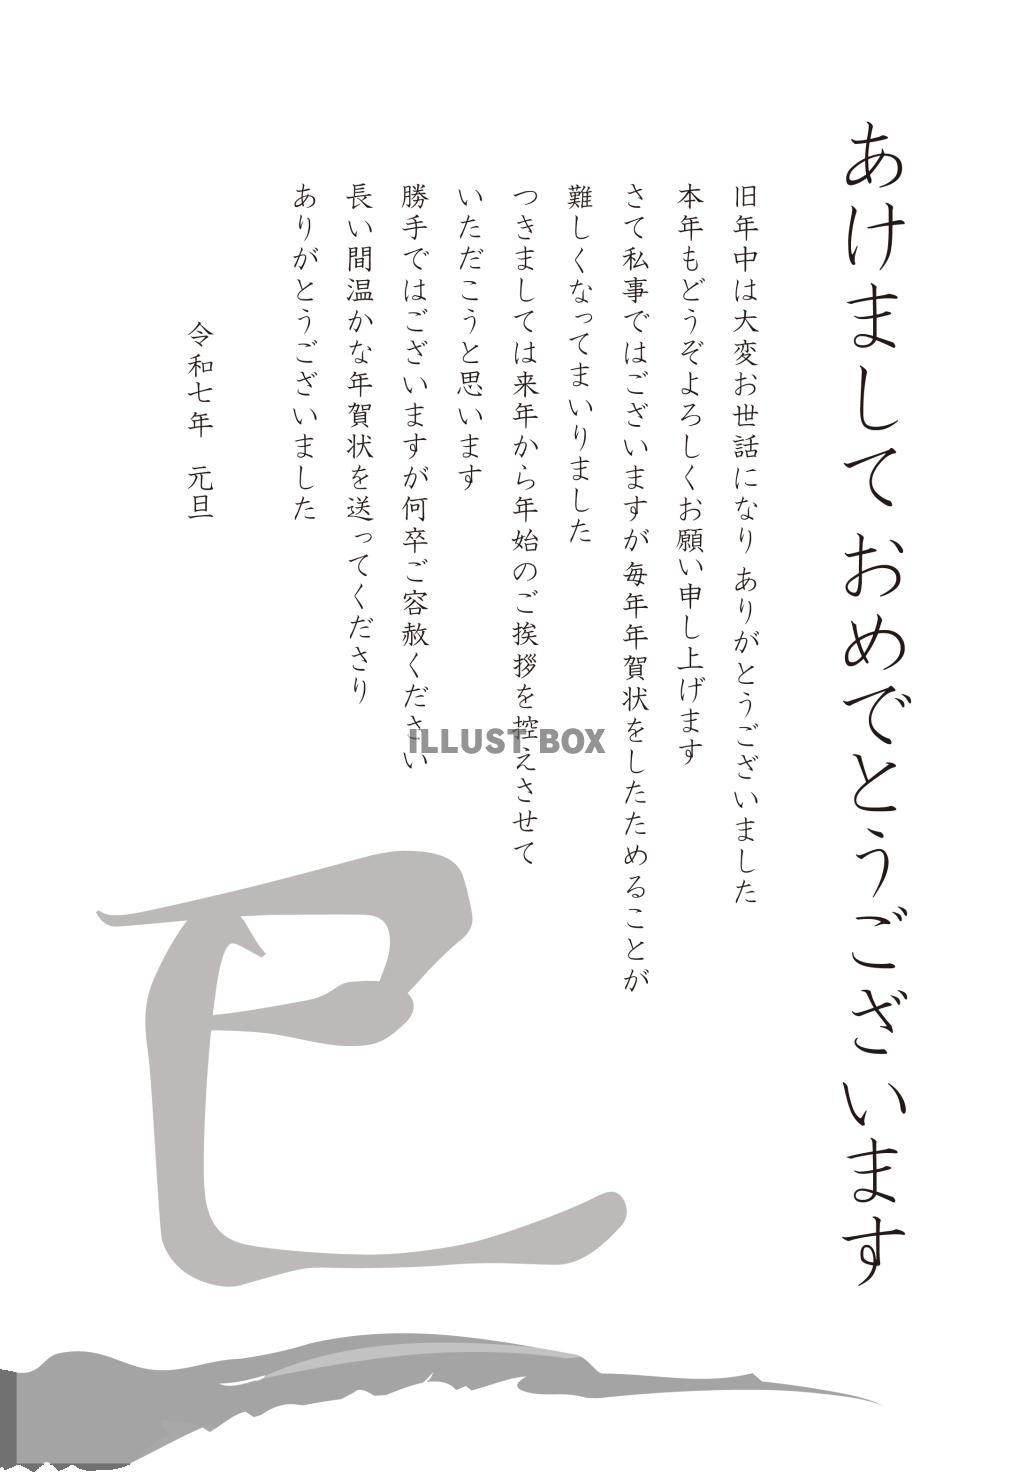 あけまして おめでとうございます
旧年中は大変お世話になり ありがとうございました
本年もどうぞよろしくお願い申し上げます
さて私事ではございますが 毎年年賀状をしたためることが
難しくなってまいりました
つきましては来年から年始のご挨拶を控えさせて
いただこうと思います
勝手ではございますが何卒ご容赦ください
長い間温かな年賀状を送ってくださり
ありがとうございました
令和七年 元旦
巳
ILLUST BOX